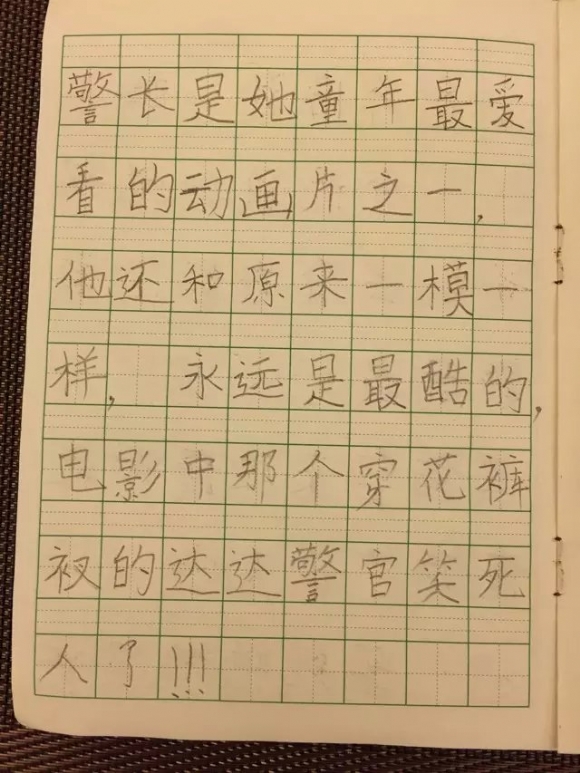 警长是她童年最爱
看的动画片之一,
他还和原来一模一
样, 永远是最酷的,
电影中那个穿花裤
衩的达达警官笑死
人了!!!